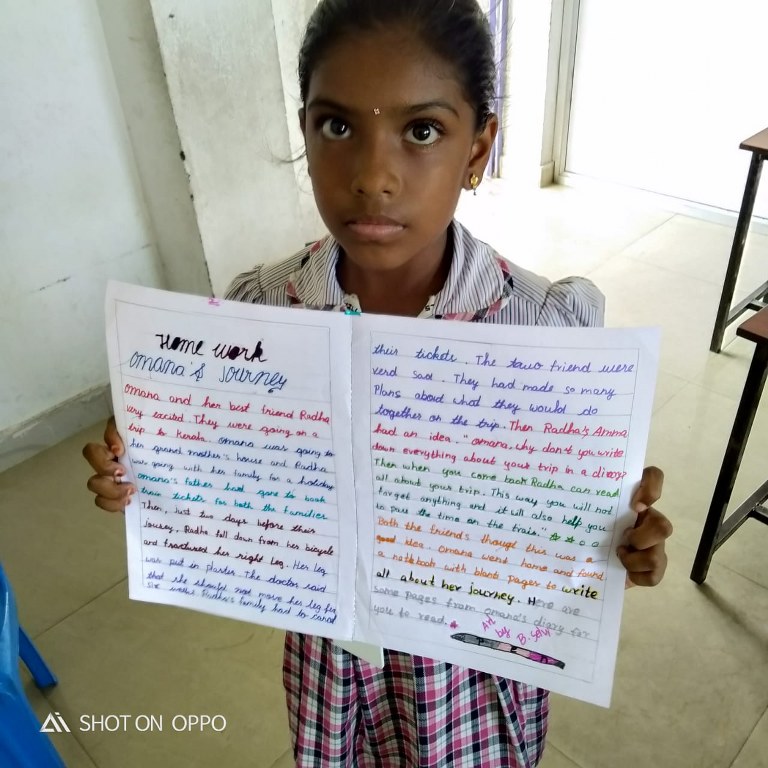 Home work
Omana's Journey
Omana and her best friend Radha
very excited. They were going on a
trip to Kerala. Omana was going to
her grand mother's house and Radha
was going with her family for a holiday
Omana's father had gone to book
train tickets for both the families
Then, just two days before their
Jouney, Radha fell down from her bicycle
and fractured her right leg. Her leg
was put in plaster. The doctor said
that she should not move her leg for
six weeks. Radha's family had to cancel
their tickets. The tawo friend were
verd sad. They had made so many
Plans about what they would do
together on the trip. Then Radha's Amma
had an idea. "Omana, why don't you write
down everything about your trip in a diary?
Then when you come back Radha can read
all about your trip. This way you will not
forget anything and it will also help you
to pass the time on the train.
Both the friends though this was a
good idea. Omana wend home and found
a notebook with blank pages to write
all about her journey. Here are
some pages from omana's diary for
you to read.
Art
by B. Selvi
SHOT ON OPPO